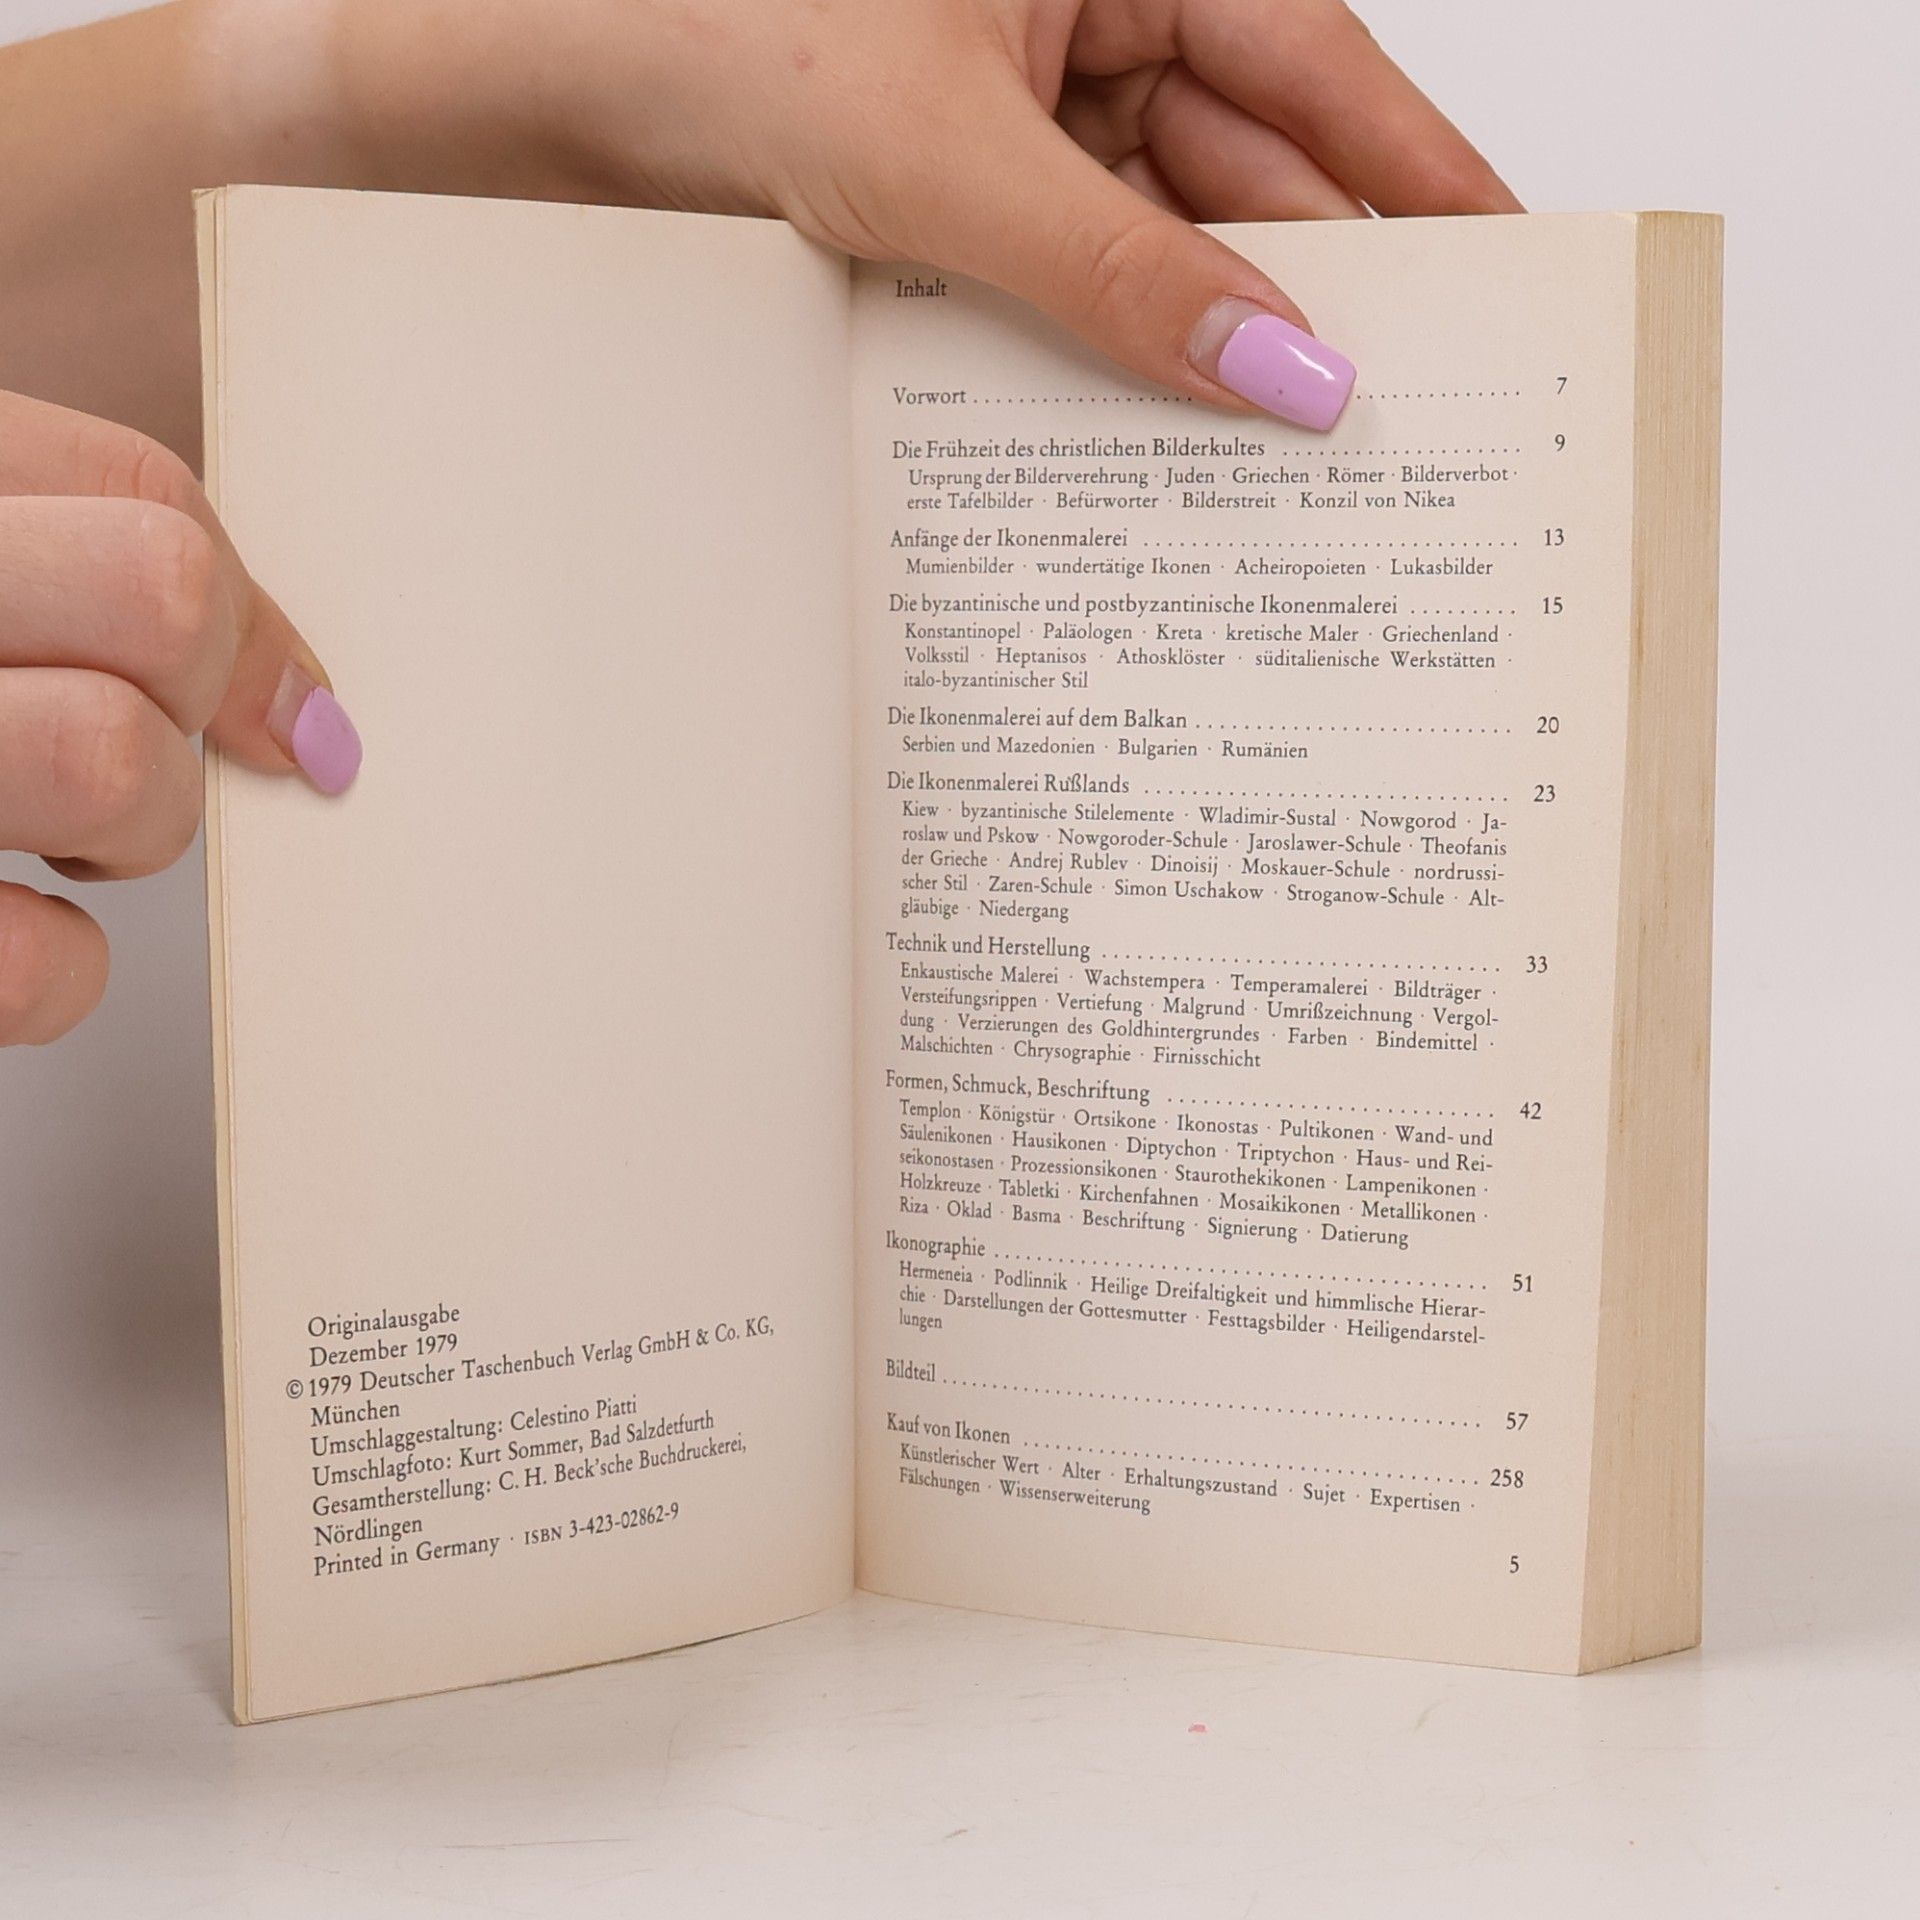 Originalausgabe
Dezember 1979
© 1979 Deutscher Taschenbuch Verlag GmbH & Co. KG,
München
Umschlaggestaltung: Celestino Piatti
Umschlagfoto: Kurt Sommer, Bad Salzdetfurth
Gesamtherstellung: C. H. Beck'sche Buchdruckerei,
Nördlingen
Printed in Germany · ISBN 3-423-02862-9
Inhalt
Vorwort . . . . . . . . . . . . . . . . . . . . . . . . . . . . . . . . 7
Die Frühzeit des christlichen Bilderkultes . . . . . . . . . . . . . . . . . . . . 9
Ursprung der Bilderverehrung · Juden · Griechen · Römer · Bilderverbot ·
erste Tafelbilder · Befürworter · Bilderstreit · Konzil von Nikea
Anfänge der Ikonenmalerei . . . . . . . . . . . . . . . . . . . . . . . . . . . . . . . 13
Mumienbilder · wundertätige Ikonen · Acheiropoieten · Lukasbilder
Die byzantinische und postbyzantinische Ikonenmalerei . . . . . . . . . 15
Konstantinopel · Paläologen · Kreta · kretische Maler · Griechenland ·
Volksstil · Heptanisos · Athosklöster · süditalienische Werkstätten ·
italo-byzantinischer Stil
Die Ikonenmalerei auf dem Balkan . . . . . . . . . . . . . . . . . . . . . . . . . . . 20
Serbien und Mazedonien · Bulgarien · Rumänien
Die Ikonenmalerei Rußlands . . . . . . . . . . . . . . . . . . . . . . . . . . . . . . . 23
Kiew · byzantinische Stilelemente · Wladimir-Sustal · Nowgorod · Ja-
roslaw und Pskow · Nowgoroder-Schule · Jaroslawer-Schule · Theofanis
der Grieche · Andrej Rublev · Dinoisij · Moskauer-Schule · nordrussi-
scher Stil · Zaren-Schule · Simon Uschakow · Stroganow-Schule · Alt-
gläubige · Niedergang
Technik und Herstellung . . . . . . . . . . . . . . . . . . . . . . . . . . . . . . . . . . 33
Enkaustische Malerei · Wachstempera · Temperamalerei · Bildträger ·
Versteifungsrippen · Vertiefung · Malgrund · Umrißzeichnung · Vergol-
dung · Verzierungen des Goldhintergrundes · Farben · Bindemittel ·
Malschichten · Chrysographie · Firnisschicht
Formen, Schmuck, Beschriftung . . . . . . . . . . . . . . . . . . . . . . . . . . . . 42
Templon · Königstür · Ortsikone · Ikonostas · Pultikonen · Wand- und
Säulenikonen · Hausikonen · Diptychon · Triptychon · Haus- und Rei-
seikonostasen · Prozessionsikonen · Staurothekikonen · Lampenikonen ·
Holzkreuze · Tabletki · Kirchenfahnen · Mosaikikonen · Metallikonen ·
Riza · Oklad · Basma · Beschriftung · Signierung · Datierung
Ikonographie . . . . . . . . . . . . . . . . . . . . . . . . . . . . . . . . . . . . . . . . . . 51
Hermeneia · Podlinnik · Heilige Dreifaltigkeit und himmlische Hierar-
chie · Darstellungen der Gottesmutter · Festtagsbilder · Heiligendarstel-
lungen
Bildteil . . . . . . . . . . . . . . . . . . . . . . . . . . . . . . . . . . . . . . . . . . . . . . 57
Kauf von Ikonen . . . . . . . . . . . . . . . . . . . . . . . . . . . . . . . . . . . . . . 258
Künstlerischer Wert · Alter · Erhaltungszustand · Sujet · Expertisen ·
Fälschungen · Wissenserweiterung
5